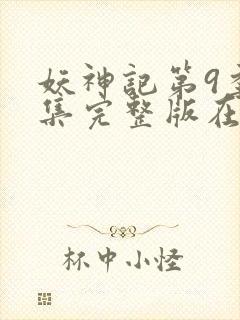 妖神記第9季
集完整版在
杯中小怪